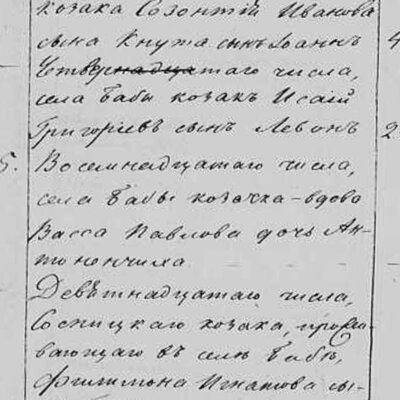 козака Созонтій Иванова
сына Кнута сынъ Іоаннъ 4
Четвернадцатаго числа,
села Бабы козакъ Исаій
Григоріевъ сынъ Леонъ 2
5. Восемнадцатаго числа,
села Бабы козачка-вдова
Васса Павлова дочь Ан-
тонончиха
Девѣтнадцатаго числа,
Сосницкаго козака, прожи-
вающаго въ селѣ Бабѣ,
Филимона Игнатова сы-